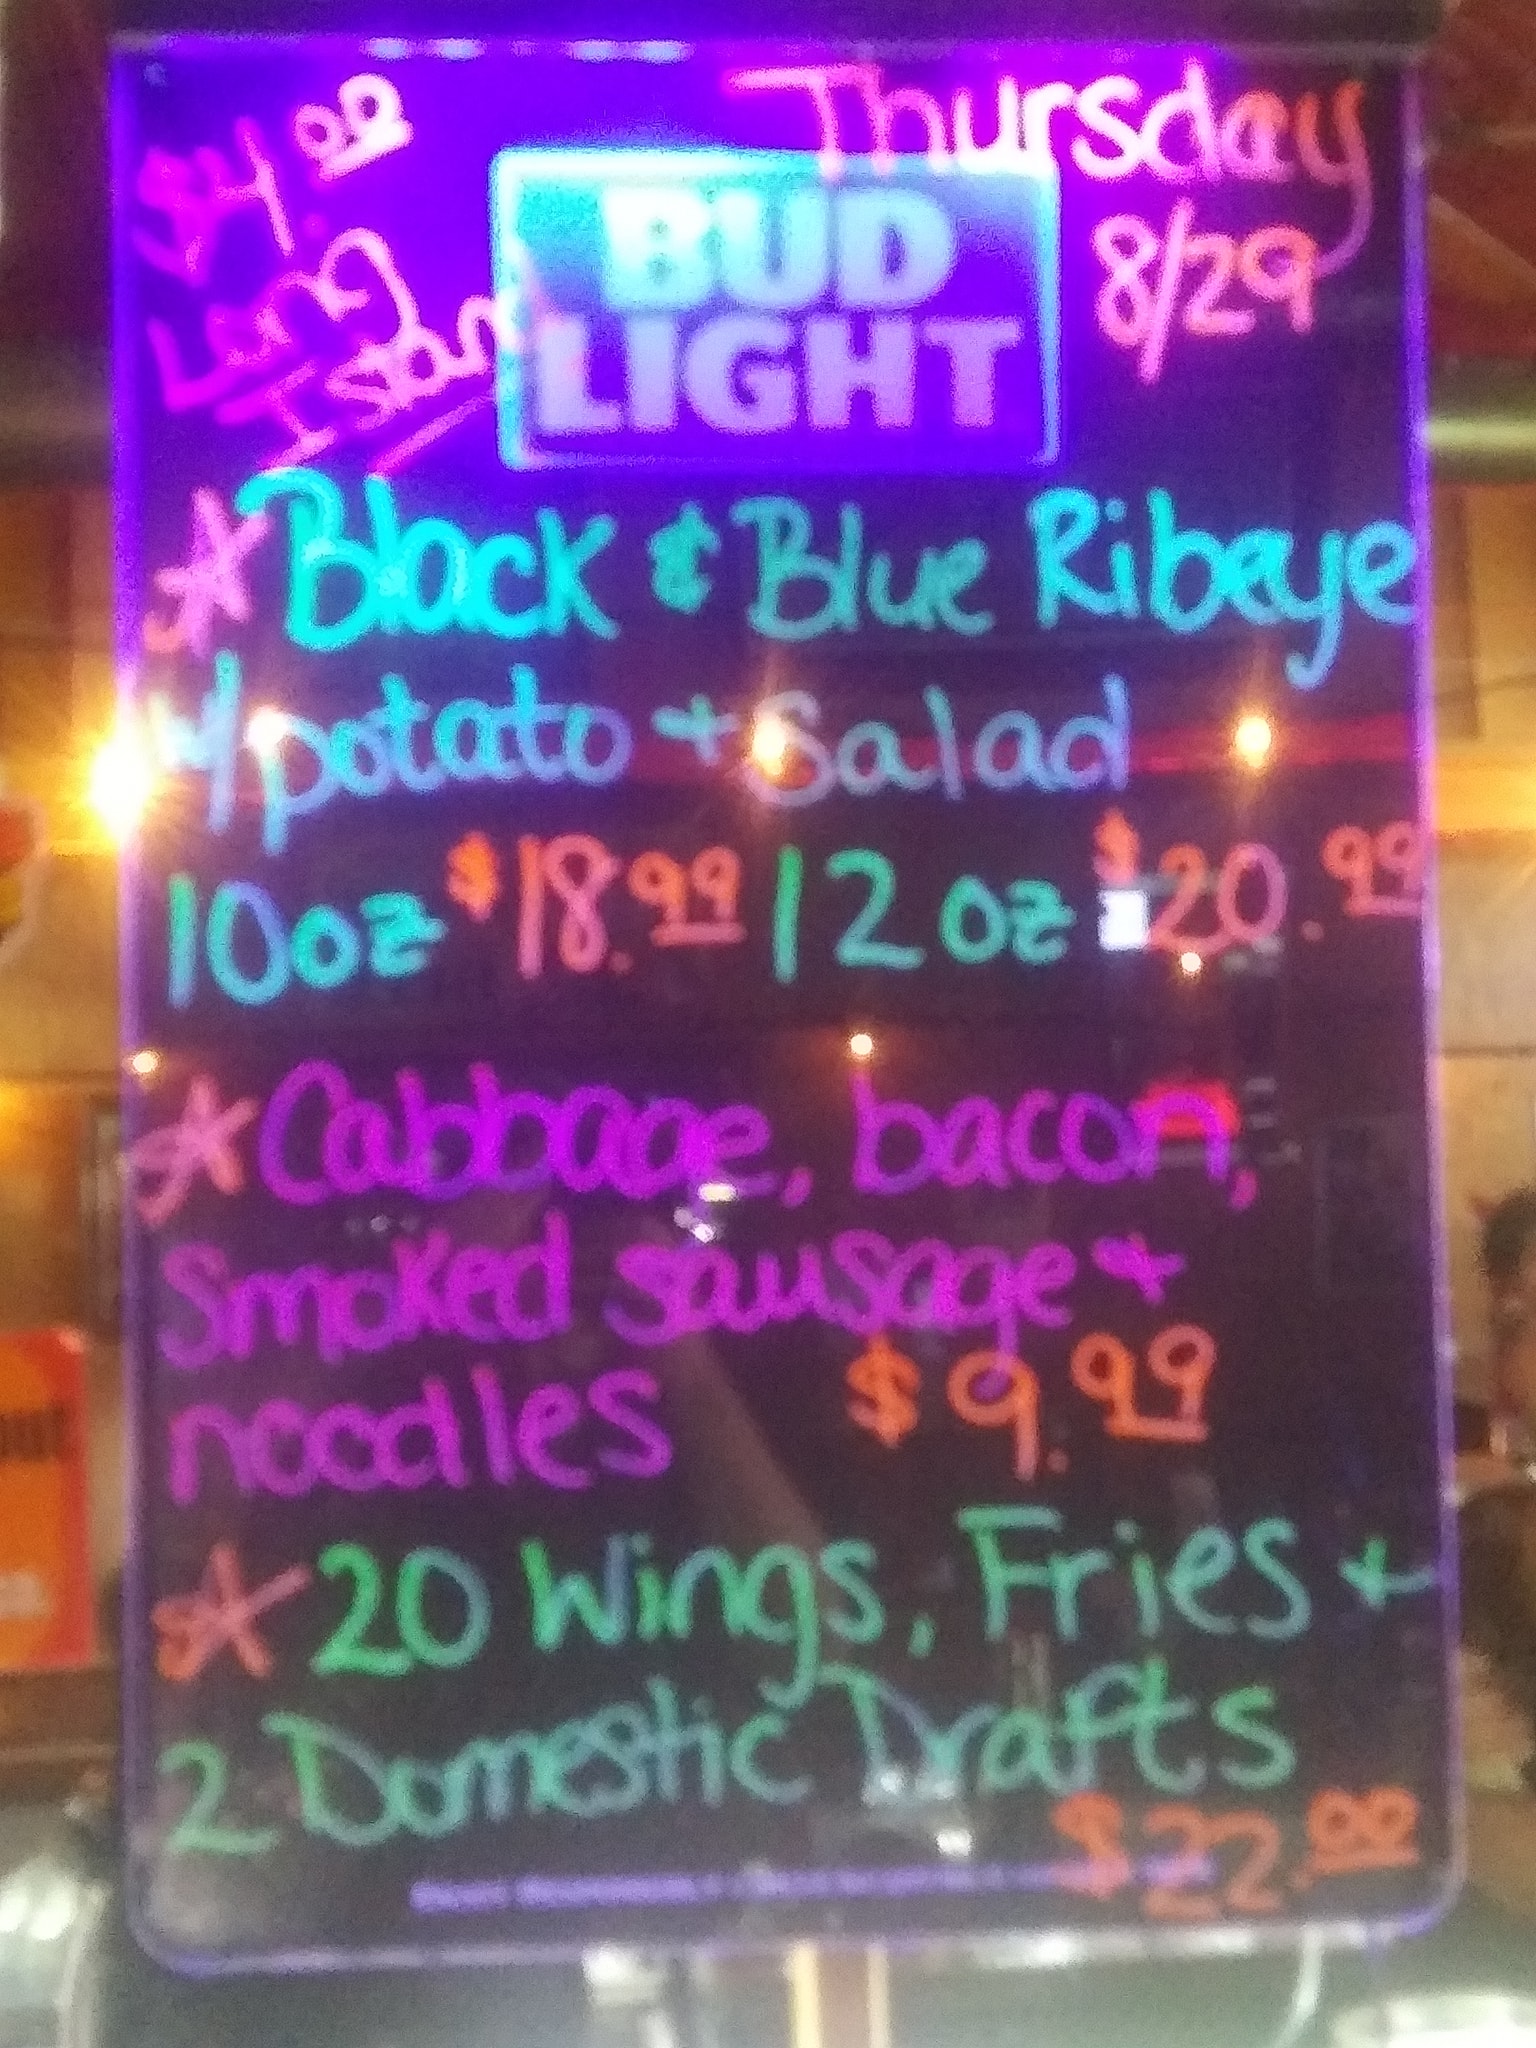 $4.00
Long
Island
Thursday
8/29
BUD
LIGHT
*Black & Blue Ribeye
w/potato + Salad
10oz $18.99 12oz $20.99
*Cabbage, bacon,
Smoked sausage +
noodles $9.99
*20 Wings, Fries +
2 Domestic Drafts
$22.00